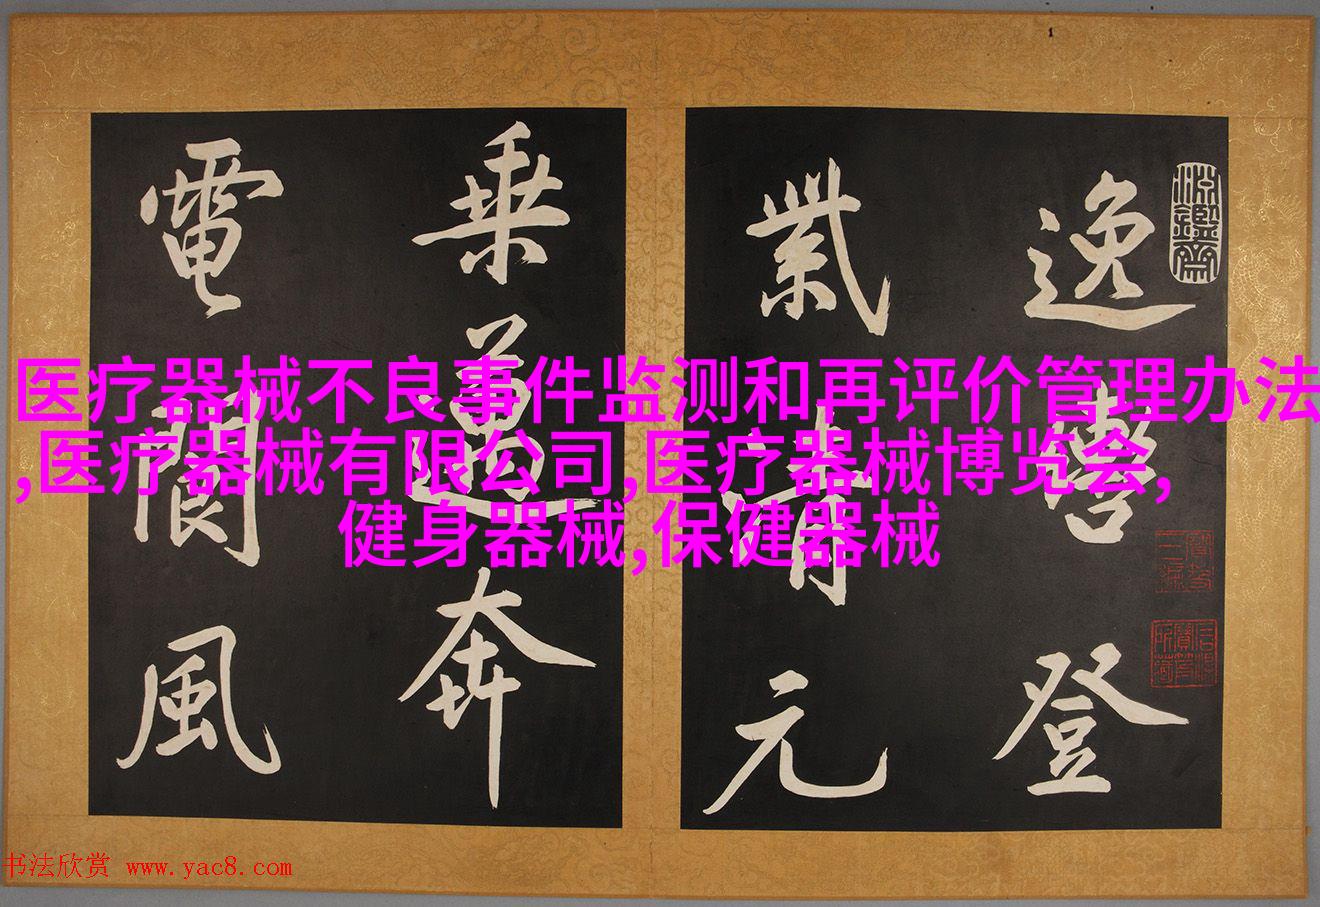 医疗器械不良事件监测和再评价管理办法
,医疗器械有限公司,医疗器械博览会,
健身器械,保健器械
逸
登
紫
清元
乘
遥奔
電
閬風
书法欣赏 www.yac8.com